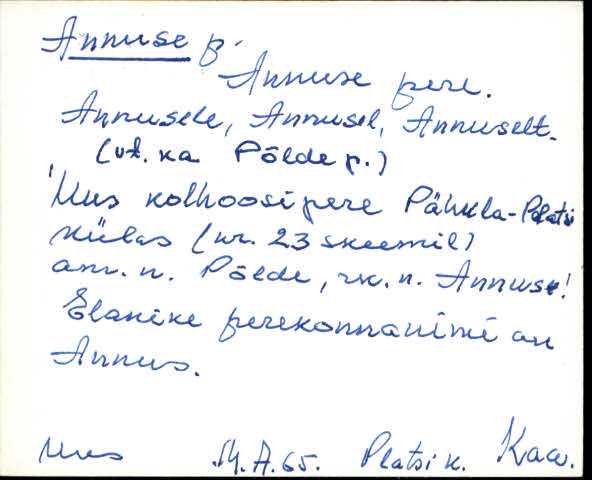 Annuse p.
Annuse pere.
Annusele, Annusel, Annuselt.
(vt. ka Põlde p.)
Uus kolhoosipere Pähkla-Platsi
külas (nr. 23 skeemil)
am. n. Põlde, rk. n. Annuse!
Elanike perekonnanimi on
Annus.
M. A. 65. Platsi k. Kaa.